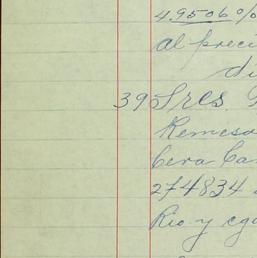 4.9506%
al preci
di
39 Sres.
Remesa
Cera Ca
274834
Rio y ega